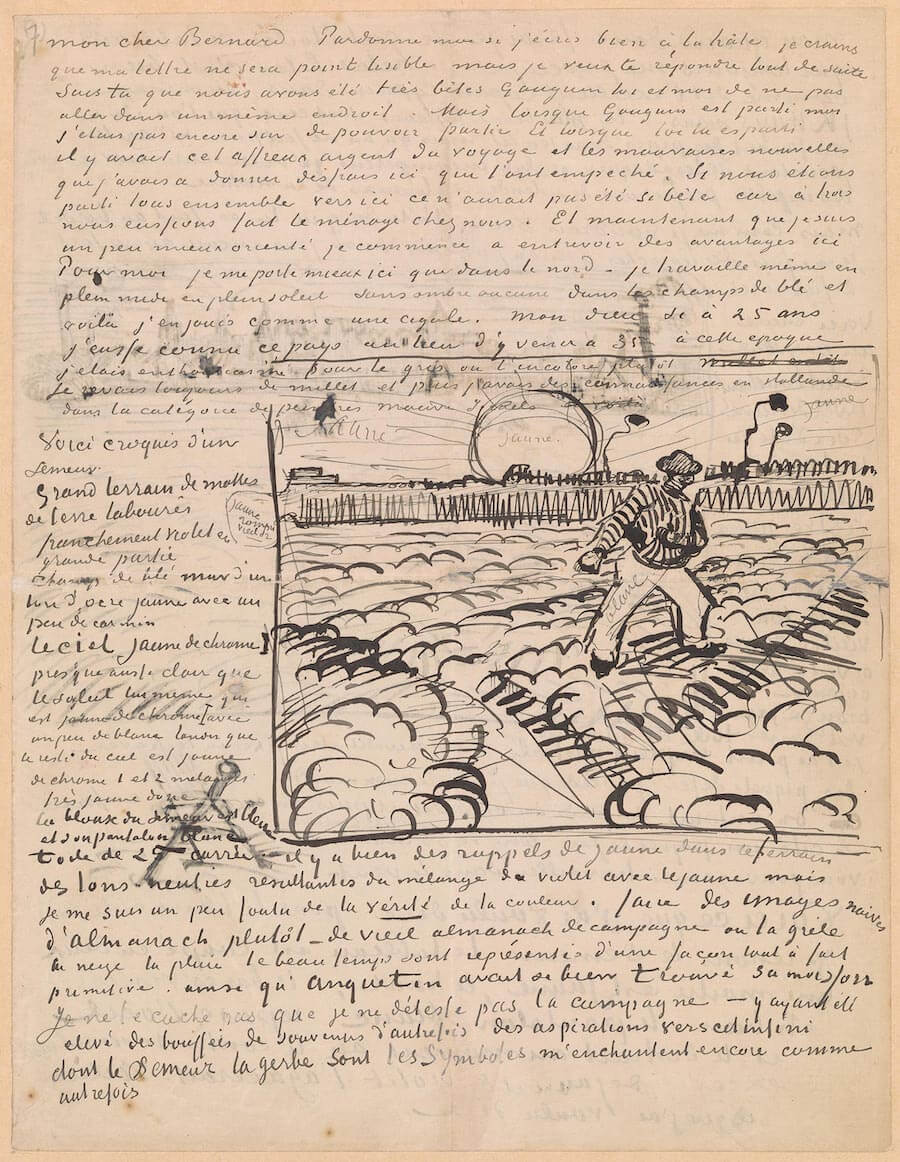 mon cher Bernard Pardonne moi si j'écris bien à la hâte je crains
que ma lettre ne sera point lisible mais je veux te repondre tout de suite
Sais tu que nous avons été très bêtes Gauguin toi et moi de ne pas
aller dans un même endroit. Mais lorsque Gauguin est parti moi
j'étais pas encore sûr de pouvoir partir Et lorsque toi tu es parti
il y avait cet affreux argent du voyage et les mauvaises nouvelles
que j'avais a donner des frais ici qui l'ont empeché. Si nous étions
parti tous ensemble vers ici ce n'aurait pas été si bête car à trois
nous eussions fait le ménage chez nous. Et maintenant que je suis
un peu mieux orienté je commence a entrevoir des avantages ici
Pour moi je me porte mieux ici que dans le nord – je travaille même en
plein midi en plein soleil sans ombre aucune dans les champs de blé et
voilà j'en jouis comme une cigale. Mon dieu si à 25 ans
j'eusse connu ce pays au lieu d'y venir à 35 – à cette epoque
j'étais enthousiasmé pour le gris ou l'incolore plutôt
je revais toujours de millet et puis j'avais des connaissances en Hollande
dans la catégorie de peintres mauve Israels
jaune
jaune
jaune.
Voici croquis d'un
semeur.
Grand terrain de mottes
de terre labourés
franchement violet en
grande partie
Champ de blé mur d'un
ton d'ocre jaune avec un
peu de carmin
jaune
rompu
blanc
Le ciel jaune de chrome 1
presque aussi clair que
le soleil lui même qui
est jaune de chrome 1 avec
un peu de blanc tandis que
le reste du ciel est jaune
de chrome 1 et 2 mélangés
très jaune donc
La blouse du semeur est bleue
et son pantalon blanc
toile de 25 carrée – il y a bien des rappels de jaune dans le terrain
des tons neutres resultantes du mélange du violet avec le jaune mais
je me suis un peu foutu de la vérité de la couleur. faire des images naives
d'almanach plutôt – de vieil almanach de campagne ou la grêle
la neige la pluie le beau temps sont représentés d'une façon tout à fait
primitive. ainsi qu'Anquetin avait si bien trouvé sa moisson
Je ne te cache pas que je ne déteste pas la campagne – y ayant été
elevé des bouffées de souvenirs d'autrefois des aspirations vers cet infini
dont le Semeur la gerbe sont les symboles m'enchantent encore comme
autrefois